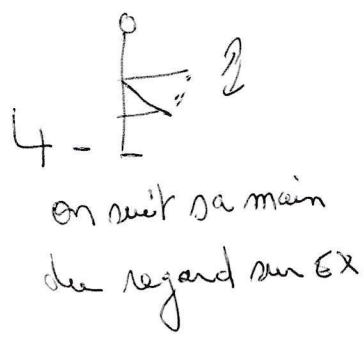 4 -
on suit sa main
du regard sur EX